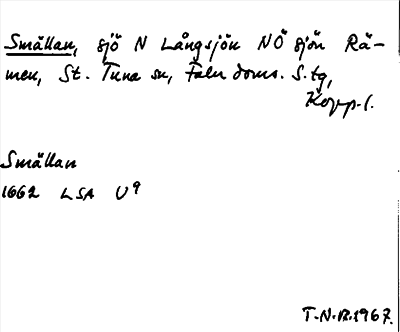 Smällan, sjö N Långsjön NÖ sjön Rä-
men, St. Tuna sn, Falu doms. S. tg,
Kopp. l.
Smällan
1662 LSA U9
T-N.R.1967.